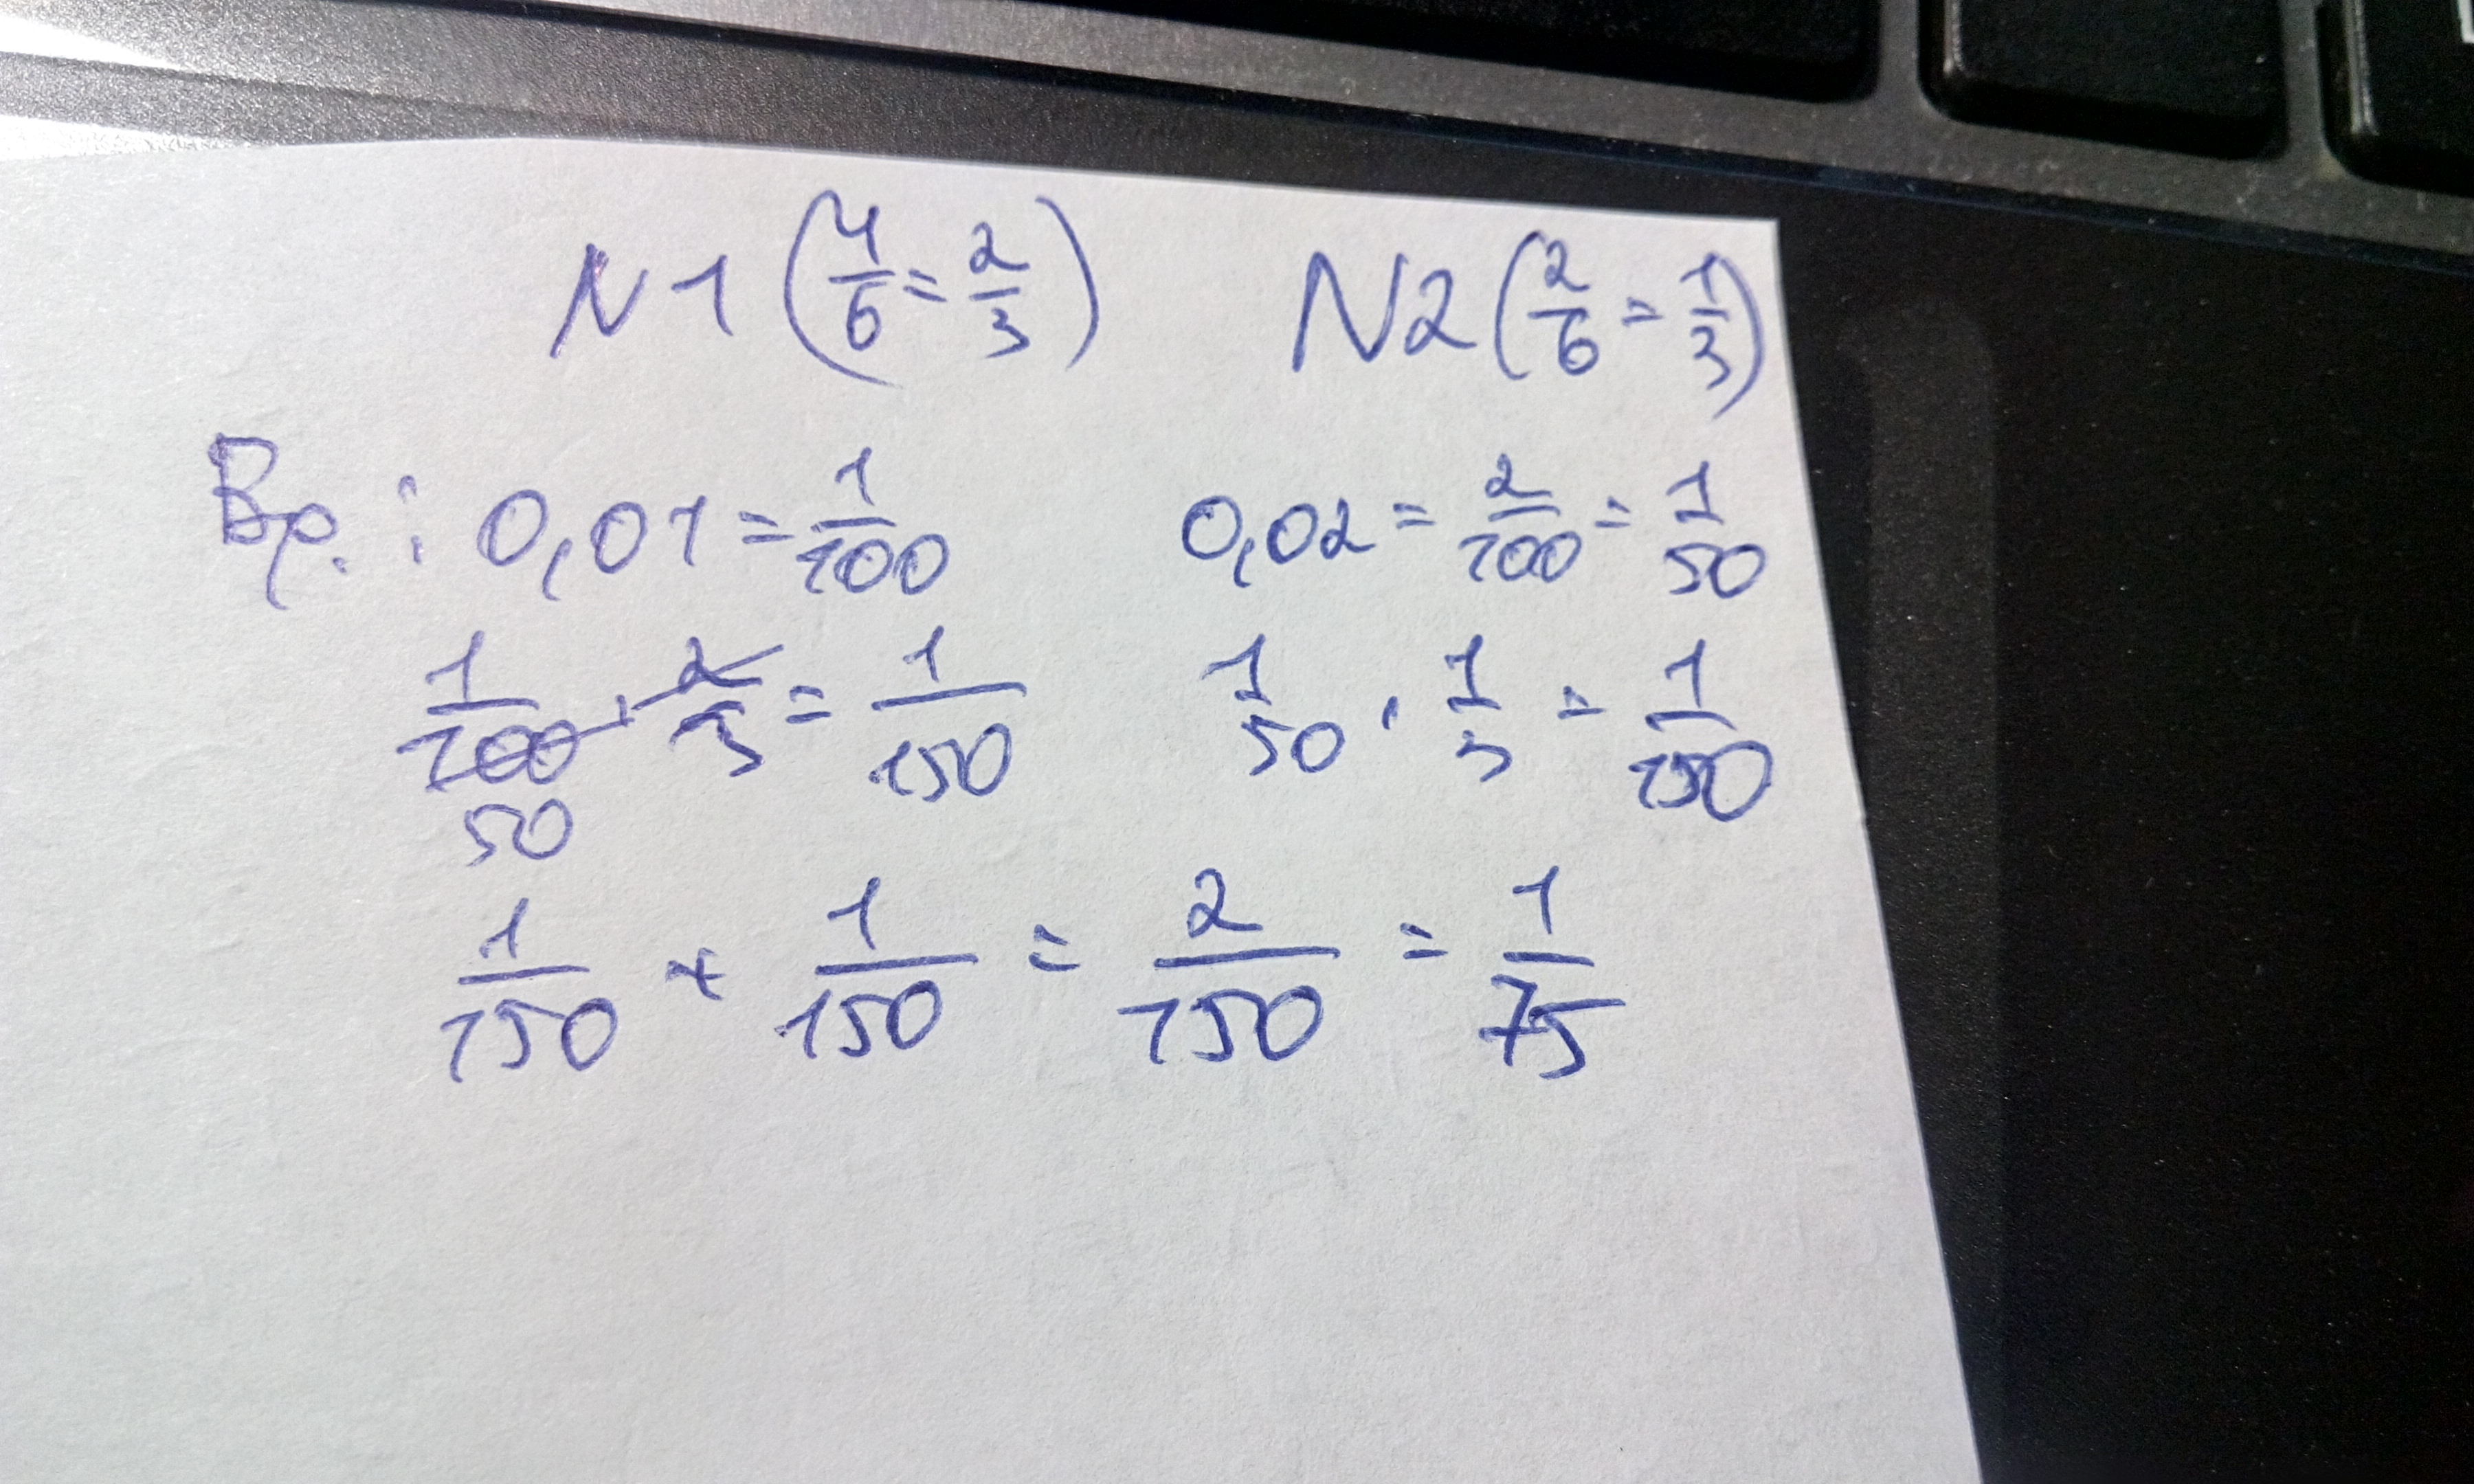 N1 (4/6 = 2/3) N2 (2/6 = 1/3)
Вр. : 0,01 = 1/100 0,02 = 2/100 = 1/50
1/100 · 2/3 = 1/150 1/50 · 1/3 = 1/150
50
1/150 + 1/150 = 2/150 = 1/75